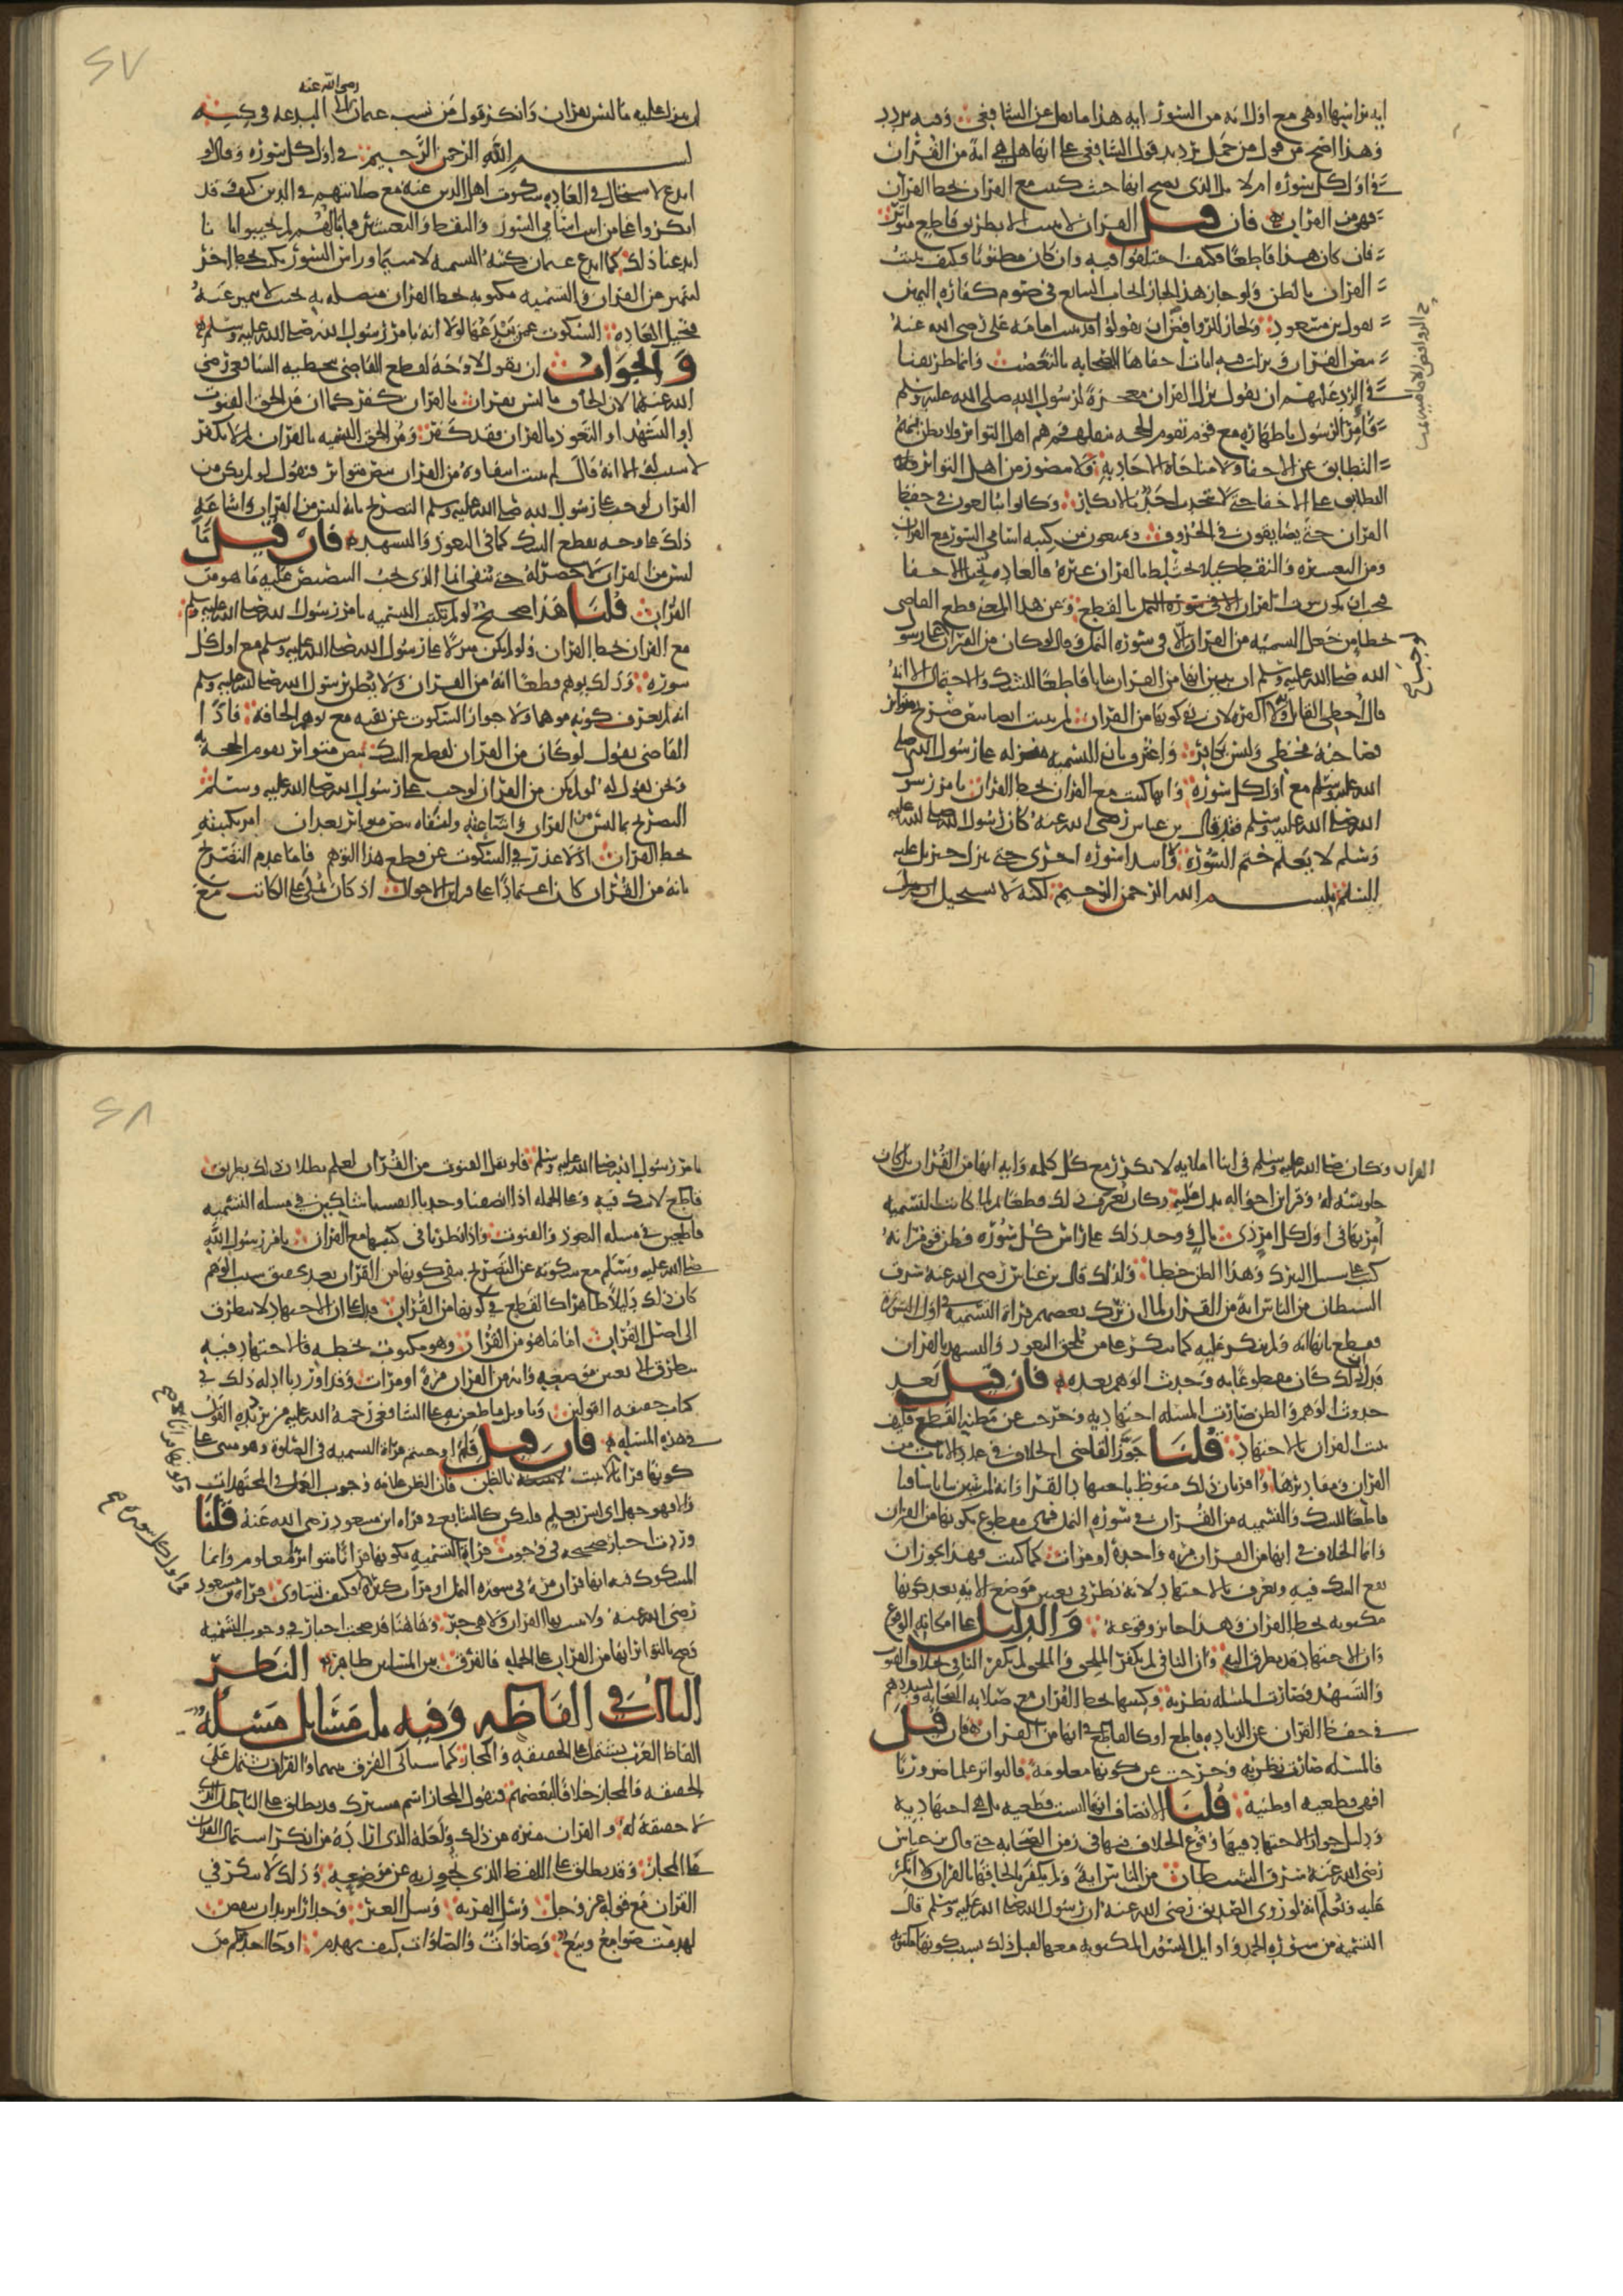 ايه براسها او هي مع اول ايه من السور ايه هذا ما نقل عن الشافعي وفيه تردد
وهذا اصح من قول من حمل تردد قول الشافعي على انها هل هي اية من القران
في اول كل سورة ام لا بل الذي يصح انها حيث كتبت مع القران بخط القران
فهي من القران فان قيل القران لا يثبت الا بطريق قاطع متواتر
فان كان هذا قاطعا فكيف اختلفوا فيه وان كان مظنونا فكيف يثبت
القران بالظن ولو جاز هذا لجاز ايجاب التتابع في صوم كفارة اليمين
بقول بن مسعود ولجاز للروافض ان يقولوا قد ثبت امامة علي رضي الله عنه
بنص القران ونزلت فيه ايات اخفاها الصحابة بالتعصب وانما طريقنا
في الرد عليهم ان نقول نزل القران معجزة لرسول الله صلى الله عليه وسلم
وامر الرسول باظهاره مع قوم تقوم الحجة بقولهم وهم اهل التواتر ولا يظن بهم
التطابق على الاخفا ولا مناجاة الاحاد به ولا مضوز من اهل التواتر
التطابق على الاخفا حتى لا يتحدث احد بالانكار وكانوا يبالغون في حفظ
القران حتى يضايقون في الحروف ويمنعون من كتبه اسامي السور مع القران
ومن التعشير والنقط كيلا يختلط بالقران غيره فالعادة تحيل الاخفا
فيجب ان يكون ثبوت القران بالقطع وعن هذا المعنى قطع القاضي
بخطا من جعل التسمية من القران الا في سورة النمل وقال لو كان من القران لوجب على رسو
الله صلى الله عليه وسلم ان يبين انها من القران بيانا قاطعا للشك والاحتمال الا انه
قال اخطي القايل به ولا اكفره لان نفي كونها من القران لم يثبت ايضا بنص صريح متواتر
فصاحبه مخطي وليس بكافر واعترف بان التسمية منزلة على رسول الله صلى
الله عليه وسلم مع اول كل سورة وانها كتبت مع القران بخط القران بامر رسو
الله صلى الله عليه وسلم فقد قال بن عباس رضي الله عنه كان رسول الله صلى الله عليه
وسلم لا يعلم ختم السورة وابتدا سورة اخرى حتى ينزل جبريل عليه
السلم ببسم الله الرحمن الرحيم لكنه لا يستحيل ان ينزل
رضي الله عنه
ان ينزل عليه ما ليس بقران وانكر قول من نسب عثمان الى البدعة في كتبه
بسم الله الرحمن الرحيم في اول كل سورة وقال لو
ابدع لاستحال في العادة سكوت اهل الدين عنه مع صلابتهم في الدين كيف وقد
انكروا على من اثبت اسامي السور والنقط والتعشير فما بالهم لم يجيبوا بانا
ابدعنا ذلك كما ابدع عثمان كتبة التسمية لا سيما وراس السور يكتب بخط اخر
ليتميز عن القران والتسمية مكتوبة بخط القران متصلة به بحيث لا تتميز عنه
فتحيل العادة السكوت عمن يبدعها لولا انه بامر رسول الله صلى الله عليه وسلم
والجواب ان نقول لا وجه لقطع القاضي بتخطية الشافعي رضي
الله عنهما لان الحاق ما ليس بقران بالقران كفر كما ان من الحق القنوت
او التشهد او التعوذ بالقران فقد كفر ومن الحق التسمية بالقران لم لا يكفر
لا سبب له الا انه قال لم يثبت انتفاوه من القران بنص متواتر فنقول لو لم يكن من
القران لوجب على رسول الله صلى الله عليه وسلم التصريح بانه ليس من القران واشاعة
ذلك على وجه يقطع الشك كما في التعوذ والتشهد فان قيل ما
ليس من القران لا حصر له حتى تنفى انما الذي يجب التنصيص عليه ما هو من
القران قلنا هذا صحيح لو لم تكتب التسمية بامر رسول الله صلى الله عليه وسلم
مع القران بخط القران ولو لم يكن منزلا على رسول الله صلى الله عليه وسلم مع اول كل
سورة وذلك يوهم قطعا انه من القران ولا يظن برسول الله صلى الله عليه وسلم
انه لم يعرف كونه موهما ولا جواز السكوت عن نفيه مع توهم الحاقه فاذا
القاضي يقول لو كان من القران لقطع الشك بنص متواتر يقوم الحجة به
ونحن نقول له لو لم يكن من القران لوجب على رسول الله صلى الله عليه وسلم
التصريح بما ليس من القران واشاعته ولنفاه بنص متواتر بعد ان امر بكتبته
بخط القران اذ لا عذر في السكوت عن قطع هذا التوهم فاما عدم التصريح
بانه من القران كان اعتمادا على قراين الاحوال اذ كان يملي على الكاتب مع
القران وكان صلى الله عليه وسلم في اثنا املايه لا يكرر مع كل كلمة واية انها من القران بل كان
جلوسه له وقراين احواله يدل عليه وكان يعرف ذلك قطعا ثم لما كانت التسمية
امر بها في اول كل امر ذي بال ووجد ذلك على راس كل سورة فظن قوم انه
كتب على سبيل التبرك وهذا الظن خطا ولذلك قال بن عباس رضي الله عنه سرق
الشيطان من الناس اية من القران لما ان ترك بعضهم قراة التسمية في اول السورة
فقطع بانها اية ولم ينكر عليه كما ينكر على من الحق التعوذ والتشهد بالقران
فدل ان ذلك كان مقطوعا به وحدث الوهم بعده فان قيل بعد
حدوث الوهم والظن صارت المسلة اجتهادية وخرجت عن مظنة القطع فكيف
يثبت القران بالاجتهاد قلنا جوز القاضي الخلاف في عدد الايات من
القران ومقاديرها واقر بان ذلك منوط باجتهاد القرا وانه لم يبين بيانا شافيا
قاطعا للشك والتسمية من القران في سورة النمل فهي مقطوع بكونها من القران
وانما الخلاف في انها من القران مرة واحدة او مرات كما كتبت فهذا يجوز ان
يقع الشك فيه ويعرف بالاجتهاد لانه نظر في تعيين موضع الاية بعد كونها
مكتوبة بخط القران وهذا جايز وقوعه والدليل على امكان الوقوع
وان الاجتهاد قد تطرق اليه وان النافي لم يكفر الملحق والملحق لم يكفر النافي بخلاف القنوت
والتشهد فصارت المسلة نظرية وكتبها بخط القران مع صلابة الصحابة وتشددهم
في حفظ القران عن الزيادة قاطع او كالقاطع في انها من القران فان قيل
فالمسلة صارت نظرية وخرجت عن كونها معلومة بالتواتر علما ضروريا
افهي قطعية او ظنية قلنا الانصاف انها ليست قطعية بل هي اجتهادية
ودليل جواز الاجتهاد فيها وقوع الخلاف فيها في زمن الصحابة حتى قال بن عباس
رضي الله عنه سرق الشيطان من الناس اية ولم يكفر بالحاقها بالقران ولا انكر
عليه ونعلم انه لو روى الصديق رضي الله عنه ان رسول الله صلى الله عليه وسلم قال
التسمية من سورة الحمد واوايل السور المكتوبة معها لقبل ذلك بسبب كونها مكتوبة
بامر رسول الله صلى الله عليه وسلم فلو نقل القنوت من القران لعلم بطلان ذلك بطريق
قاطع لا شك فيه وعلى الجملة اذا انصفنا وجدنا انفسنا شاكين في مسلة التسمية
قاطعين في مسلة التعوذ والقنوت واذا نظرنا في كتبها مع القران بامر رسول الله
صلى الله عليه وسلم مع سكوته عن التصريح بنفي كونها من القران بعد تحقق سبب الوهم
كان ذلك دليلا ظاهرا كالقطع في كونها من القران فدل على ان الاجتهاد لا يتطرق
الى اصل القران اما ما هو من القران وهو مكتوب بخطه فالاجتهاد فيه
يتطرق الى تعيين موضعه وانه من القران مرة او مرات وقد اوردنا ادلة ذلك في
كتاب حقيقة القولين وتاويل ما طعن به على الشافعي رحمة الله عليه من ترديده القول
في هذه المسلة فان قيل قد اوجبتم قراة التسمية في الصلوة وهو مبني على
كونها قرانا ولا يثبت بالظن فان الظن علامة وجوب العمل في المجتهدات
والا فهو جهل اي ليس بعلم فليكن كالتتابع في قراة ابن مسعود رضي الله عنه قلنا
وردت اخبار صحيحة في وجوب قراة التسمية وكونها قرانا متواترا معلوم وانما
المشكوك فيه انها قران مرة في سورة النمل او مرات كثيرة فكيف تساوي قراة بن مسعود
رضي الله عنه ولا يثبت بها القران ولا هي خبر وهاهنا قد صحت اخبار في وجوب التسمية
وصح بالتواتر انها من القران على الجملة فالفرق بين المسلتين ظاهر النظر
الثالث في الفاظه وفيه ثلث مسايل مسلة
الفاظ العرب تشتمل على الحقيقة والمجاز كما سياتي الفرق بينهما والقران يشتمل على
الحقيقة والمجاز خلافا لبعضهم فنقول المجاز اسم مشترك قد يطلق على الباطل الذي
لا حقيقة له والقران منزه عن ذلك ولعله الذي اراده من انكر اشتمال القران
على المجاز وقد يطلق على اللفظ الذي تجوز به عن موضعه وذلك لا ينكر في
القران مع قوله عز وجل وسل القرية وسل العير وجدارا يريد ان ينقض
لهدمت صوامع وبيع وصلوات والصلوات كيف تهدم او جا احد منكم من